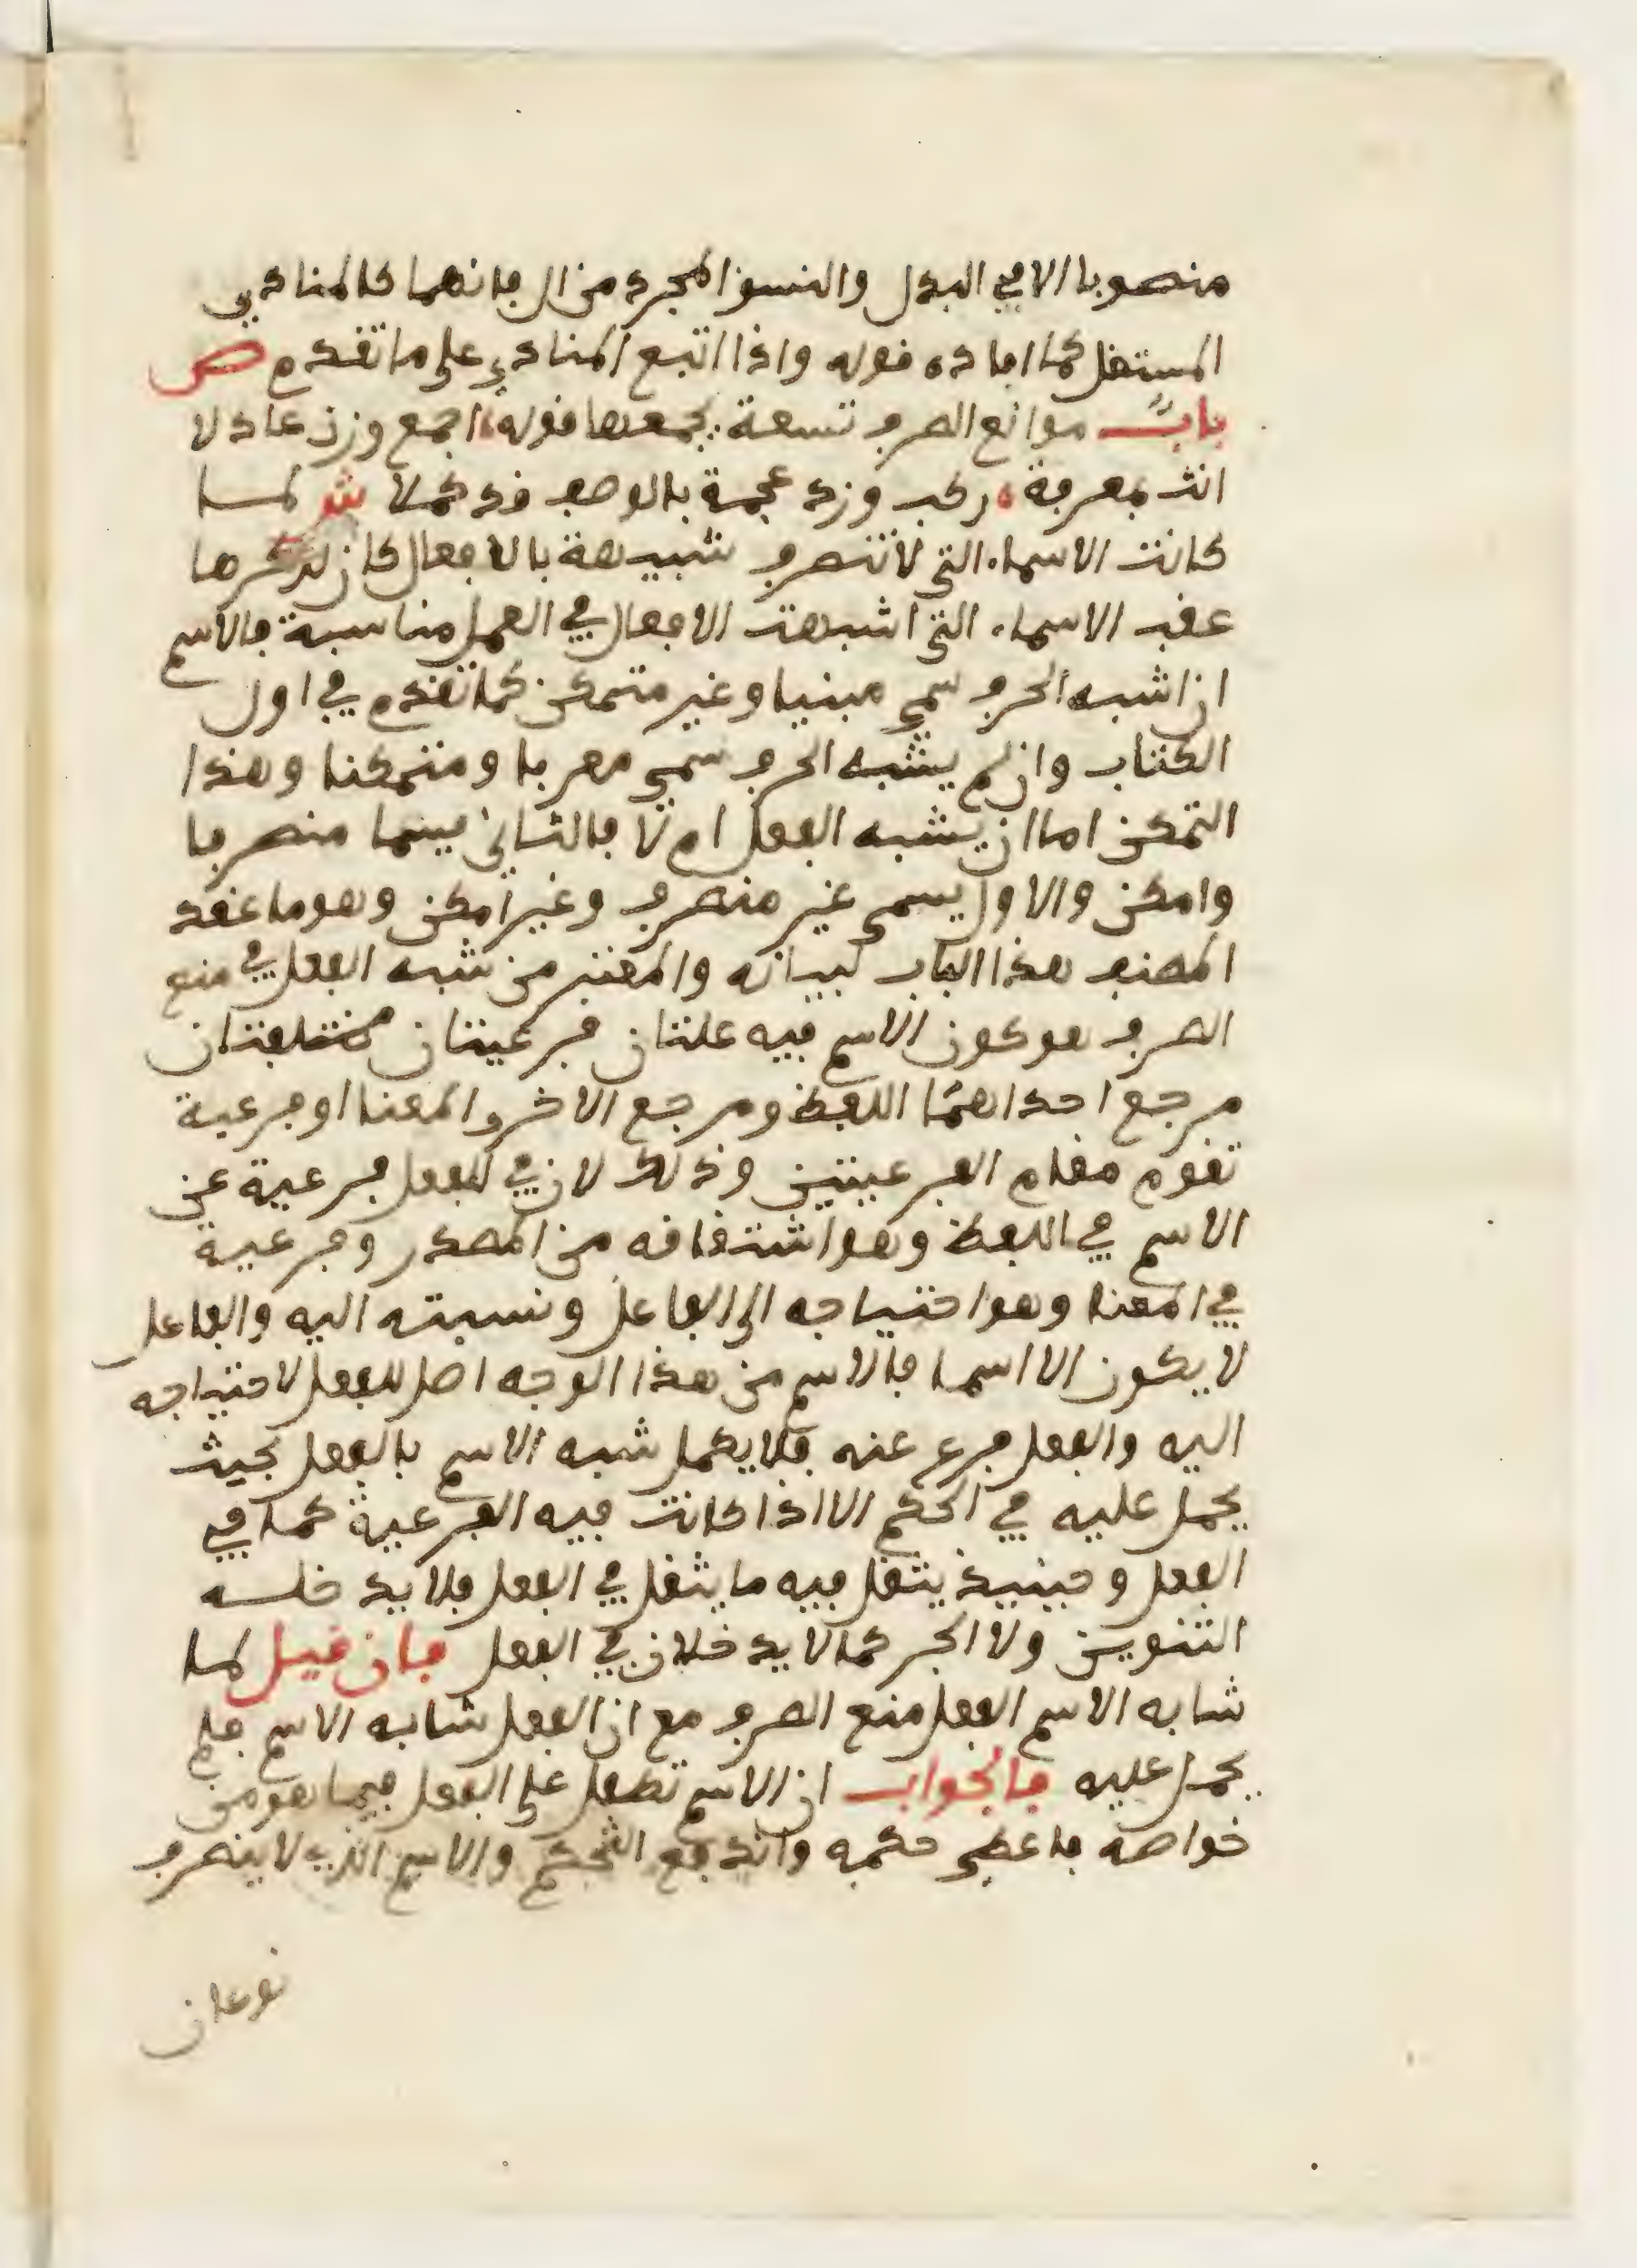 منصوبا الا في البدل والنسق المجرد من ال فانهما كالمنادي
المستقل كما افاده قوله واذا اتبع المنادي على ما تقدم ص
باب موانع الصرف تسعة يجمعها قوله اجمع وزن عادلا
انث بمعرفة ركب وزد عجمة فالوصف قد كملا ش لما
كانت الاسماء التي لا تنصرف شبيهة بالافعال كان ذكرها
عقب الاسماء التي اشبهت الافعال في العمل مناسبة فالاسم
ان اشبه الحرف سمي مبنيا وغير متمكن كما تقدم في اول
الكتاب وان لم يشبه الحرف سمى معربا ومتمكنا وهذا
التمكن اما ان يشبه الفعل ام لا فالثاني يسما منصرفا
وامكن والاول يسمى غير منصرف وغير امكن وهو ما عقد
المصنف هذا الباب لبيانه والمعتبر من شبه الفعل في منع
الصرف هو كون الاسم فيه علتان فرعيتان مختلفتان
مرجع احداهما اللفظ ومرجع الاخر المعنا او فرعية
تقوم مقام الفرعيتين وذلك لان في الفعل فرعية عن
الاسم في اللفظ وهو اشتقاقه من المصدر وفرعية
في المعنا وهو احتياجه الى الفاعل ونسبته اليه والفاعل
لا يكون الا اسما فالاسم من هذا الوجه اصل للفعل لاحتياجه
اليه والفعل فرع عنه فلا يكمل شبه الاسم بالفعل بحيث
يحمل عليه في الحكم الا اذا كانت فيه الفرعية كما في
الفعل وحينيذ يثقل فيه ما يثقل في الفعل فلا يدخلسه
التنوين ولا الجر كما لا يدخلان في الفعل فان قيل لما
شابه الاسم الفعل منع الصرف مع ان الفعل شابه الاسم فلم
يحمل عليه فالجواب ان الاسم تطفل على الفعل فيما هو من
خواصه فاعطي حكمه واندفع التحكم والاسم الذي لا ينصرف
نوعان